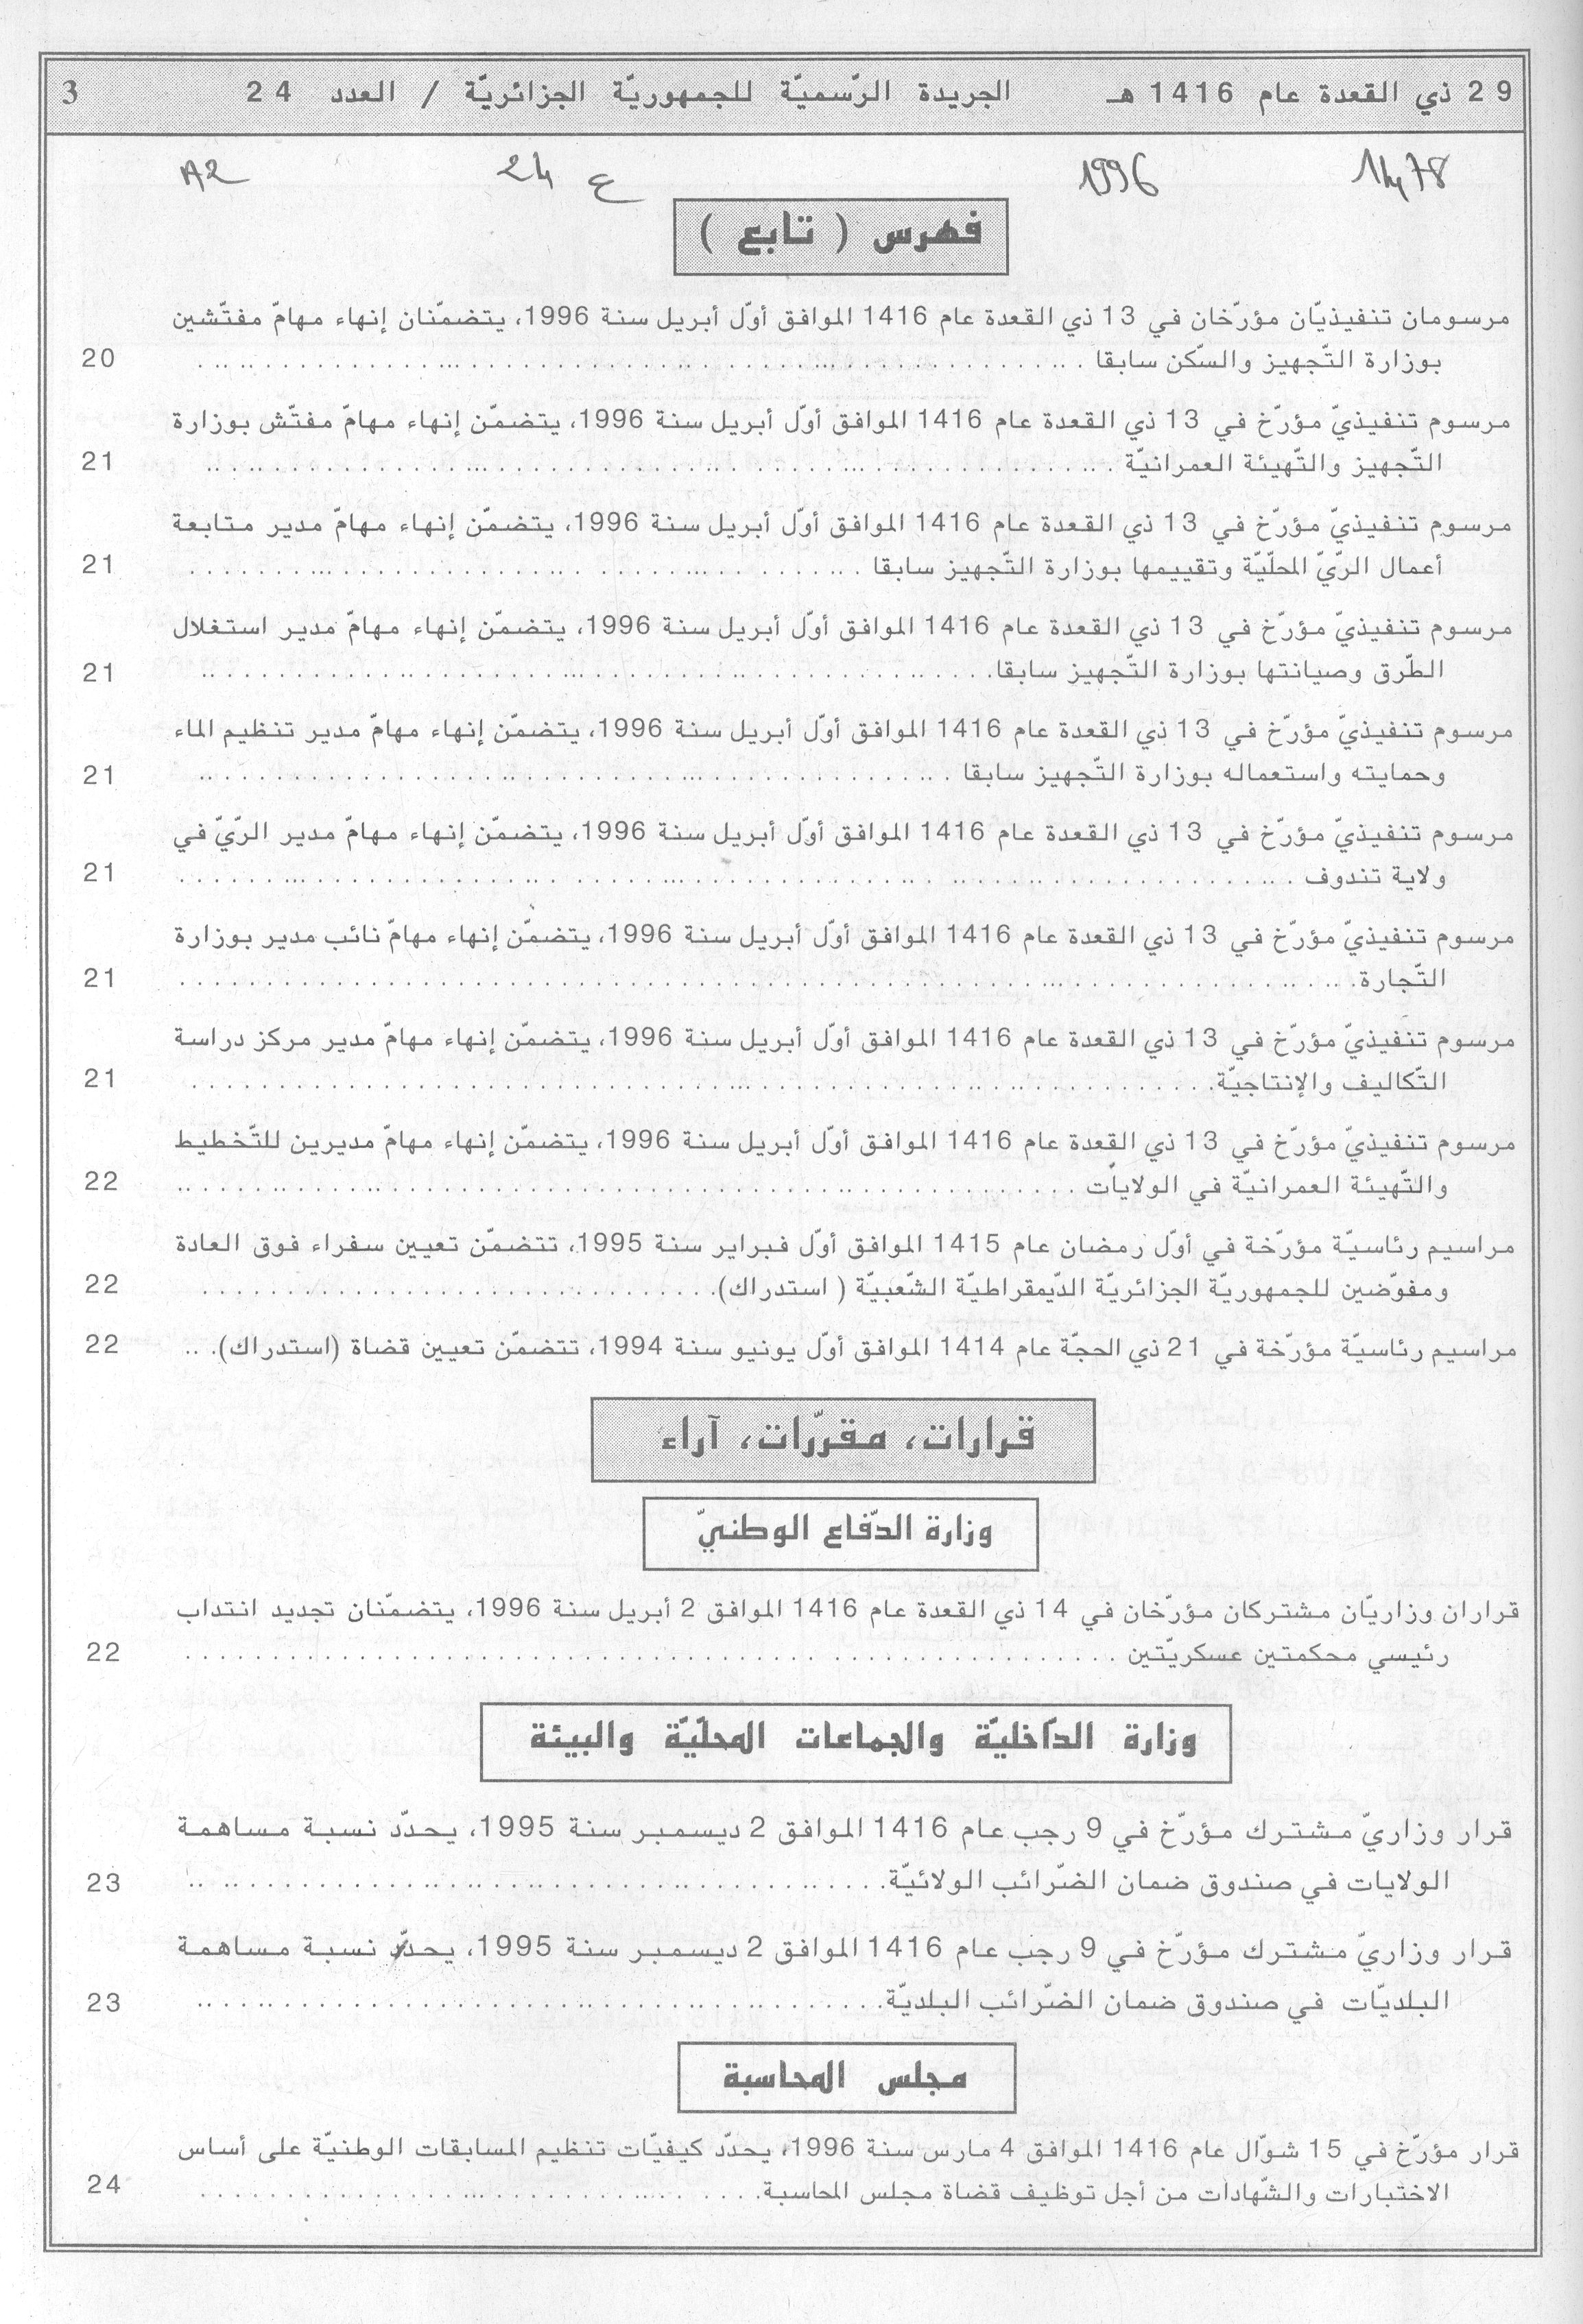 29 ذي القعدة عام 1416 هـ الجريدة الرّسميّة للجمهوريّة الجزائريّة / العدد 24 3
1478 1996 ع 24 A2
فهرس ( تابع )
مرسومان تنفيذيّان مؤرّخان في 13 ذي القعدة عام 1416 الموافق أوّل أبريل سنة 1996، يتضمّنان إنهاء مهامّ مفتّشين
بوزارة التّجهيز والسّكن سابقا 20
مرسوم تنفيذيّ مؤرّخ في 13 ذي القعدة عام 1416 الموافق أوّل أبريل سنة 1996، يتضمّن إنهاء مهامّ مفتّش بوزارة
التّجهيز والتّهيئة العمرانيّة 21
مرسوم تنفيذيّ مؤرّخ في 13 ذي القعدة عام 1416 الموافق أوّل أبريل سنة 1996، يتضمّن إنهاء مهامّ مدير متابعة
أعمال الرّيّ المحلّيّة وتقييمها بوزارة التّجهيز سابقا 21
مرسوم تنفيذيّ مؤرّخ في 13 ذي القعدة عام 1416 الموافق أوّل أبريل سنة 1996، يتضمّن إنهاء مهامّ مدير استغلال
الطّرق وصيانتها بوزارة التّجهيز سابقا 21
مرسوم تنفيذيّ مؤرّخ في 13 ذي القعدة عام 1416 الموافق أوّل أبريل سنة 1996، يتضمّن إنهاء مهامّ مدير تنظيم الماء
وحمايته واستعماله بوزارة التّجهيز سابقا 21
مرسوم تنفيذيّ مؤرّخ في 13 ذي القعدة عام 1416 الموافق أوّل أبريل سنة 1996، يتضمّن إنهاء مهامّ مدير الرّيّ في
ولاية تندوف 21
مرسوم تنفيذيّ مؤرّخ في 13 ذي القعدة عام 1416 الموافق أوّل أبريل سنة 1996، يتضمّن إنهاء مهامّ نائب مدير بوزارة
التّجارة 21
مرسوم تنفيذيّ مؤرّخ في 13 ذي القعدة عام 1416 الموافق أوّل أبريل سنة 1996، يتضمّن إنهاء مهامّ مدير مركز دراسة
التّكاليف والإنتاجيّة 21
مرسوم تنفيذيّ مؤرّخ في 13 ذي القعدة عام 1416 الموافق أوّل أبريل سنة 1996، يتضمّن إنهاء مهامّ مديرين للتّخطيط
والتّهيئة العمرانيّة في الولايات 22
مراسيم رئاسيّة مؤرّخة في أوّل رمضان عام 1415 الموافق أوّل فبراير سنة 1995، تتضمّن تعيين سفراء فوق العادة
ومفوّضين للجمهوريّة الجزائريّة الدّيمقراطيّة الشّعبيّة ( استدراك) 22
مراسيم رئاسيّة مؤرّخة في 21 ذي الحجّة عام 1414 الموافق أوّل يونيو سنة 1994، تتضمّن تعيين قضاة (استدراك) 22
قرارات، مقرّرات، آراء
وزارة الدّفاع الوطنيّ
قراران وزاريّان مشتركان مؤرّخان في 14 ذي القعدة عام 1416 الموافق 2 أبريل سنة 1996، يتضمّنان تجديد انتداب
رئيسي محكمتين عسكريّتين 22
وزارة الدّاخليّة والجماعات المحلّيّة والبيئة
قرار وزاريّ مشترك مؤرّخ في 9 رجب عام 1416 الموافق 2 ديسمبر سنة 1995، يحدّد نسبة مساهمة
الولايات في صندوق ضمان الضّرائب الولائيّة 23
قرار وزاريّ مشترك مؤرّخ في 9 رجب عام 1416 الموافق 2 ديسمبر سنة 1995، يحدّد نسبة مساهمة
البلديّات في صندوق ضمان الضّرائب البلديّة 23
مجلس المحاسبة
قرار مؤرّخ في 15 شوّال عام 1416 الموافق 4 مارس سنة 1996، يحدّد كيفيّات تنظيم المسابقات الوطنيّة على أساس
الاختبارات والشّهادات من أجل توظيف قضاة مجلس المحاسبة 24